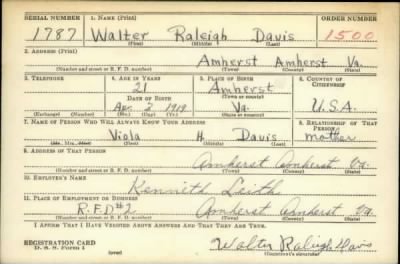 SERIAL NUMBER 1. NAME (Print) ORDER NUMBER
1787 Walter Raleigh Davis 1500
(First) (Middle) (Last)
2. ADDRESS (Print)
Amherst Amherst Va.
(Number and street or R. F. D. number) (Town) (County) (State)
3. TELEPHONE 4. AGE IN YEARS 5. PLACE OF BIRTH 6. COUNTRY OF CITIZENSHIP
21 Amherst
DATE OF BIRTH (Town or county)
Apr. 2 1919 Va. U.S.A.
(Exchange) (Number) (Mo.) (Day) (Yr.) (State or country)
7. NAME OF PERSON WHO WILL ALWAYS KNOW YOUR ADDRESS 8. RELATIONSHIP OF THAT PERSON
Viola H. Davis mother
(Mr., Mrs., Miss) (First) (Middle) (Last)
9. ADDRESS OF THAT PERSON
Amherst Amherst Va.
(Number and street or R. F. D. number) (Town) (County) (State)
10. EMPLOYER'S NAME
Kenneth
11. PLACE OF EMPLOYMENT OR BUSINESS
R.F.D #2 Amherst Amherst Va.
(Number and street or R. F. D. number) (Town) (County) (State)
I AFFIRM THAT I HAVE VERIFIED ABOVE ANSWERS AND THAT THEY ARE TRUE.
REGISTRATION CARD
D. S. S. Form 1 Walter Raleigh Davis